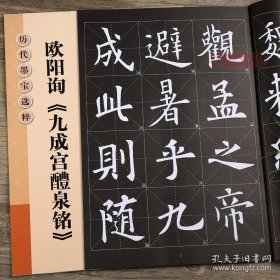 历代墨宝选粹
欧阳询《九成宫醴泉铭》
觀孟之帝
避暑乎九
成此則随
孔夫子旧书网